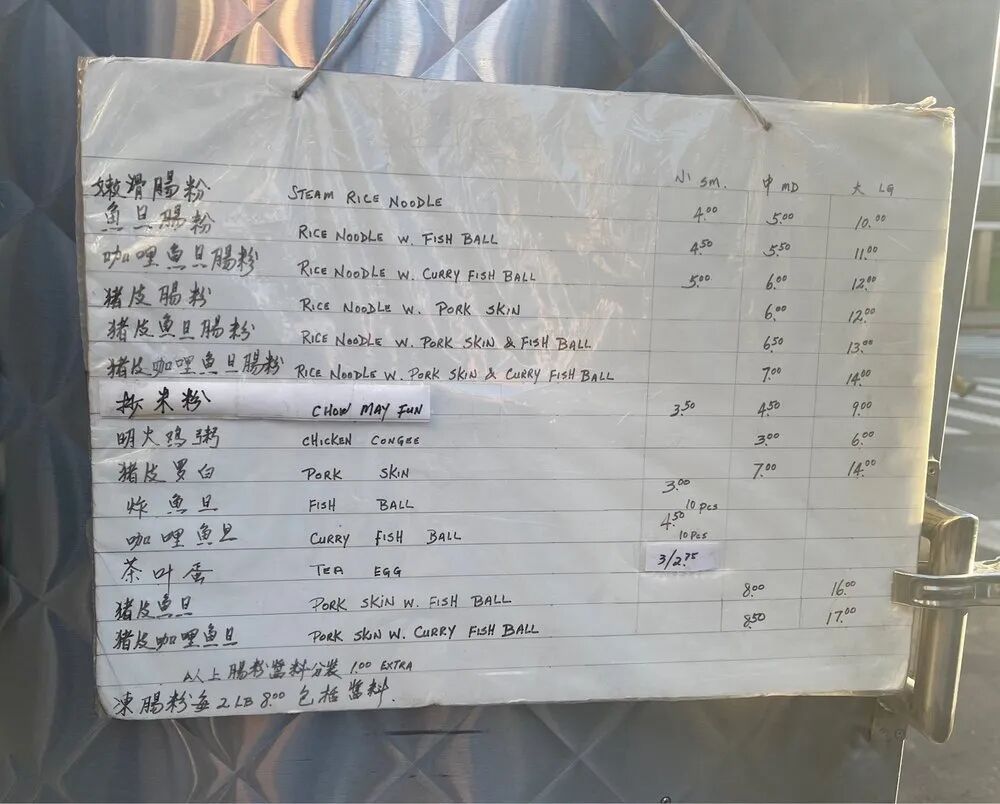 小 SM. 中 MD 大 LG
嫩滑腸粉 STEAM RICE NOODLE 4.00 5.00 10.00
魚旦腸粉 RICE NOODLE W. FISH BALL 4.50 5.50 11.00
咖哩魚旦腸粉 RICE NOODLE W. CURRY FISH BALL 5.00 6.00 12.00
猪皮腸粉 RICE NOODLE W. PORK SKIN 6.00 12.00
猪皮魚旦腸粉 RICE NOODLE W. PORK SKIN & FISH BALL 6.50 13.00
猪皮咖哩魚旦腸粉 RICE NOODLE W. PORK SKIN & CURRY FISH BALL 7.00 14.00
抄米粉 CHOW MAY FUN 3.50 4.50 9.00
明火鸡粥 CHICKEN CONGEE 3.00 6.00
猪皮罗白 PORK SKIN 7.00 14.00
炸魚旦 FISH BALL 3.00 10 pcs
咖哩魚旦 CURRY FISH BALL 4.50 10 pcs
茶叶蛋 TEA EGG 3/2.75
猪皮魚旦 PORK SKIN W. FISH BALL 8.00 16.00
猪皮咖哩魚旦 PORK SKIN W. CURRY FISH BALL 8.50 17.00
以上腸粉醬料分裝 1.00 EXTRA
凍腸粉每 2 LB 8.00 包括醬料.